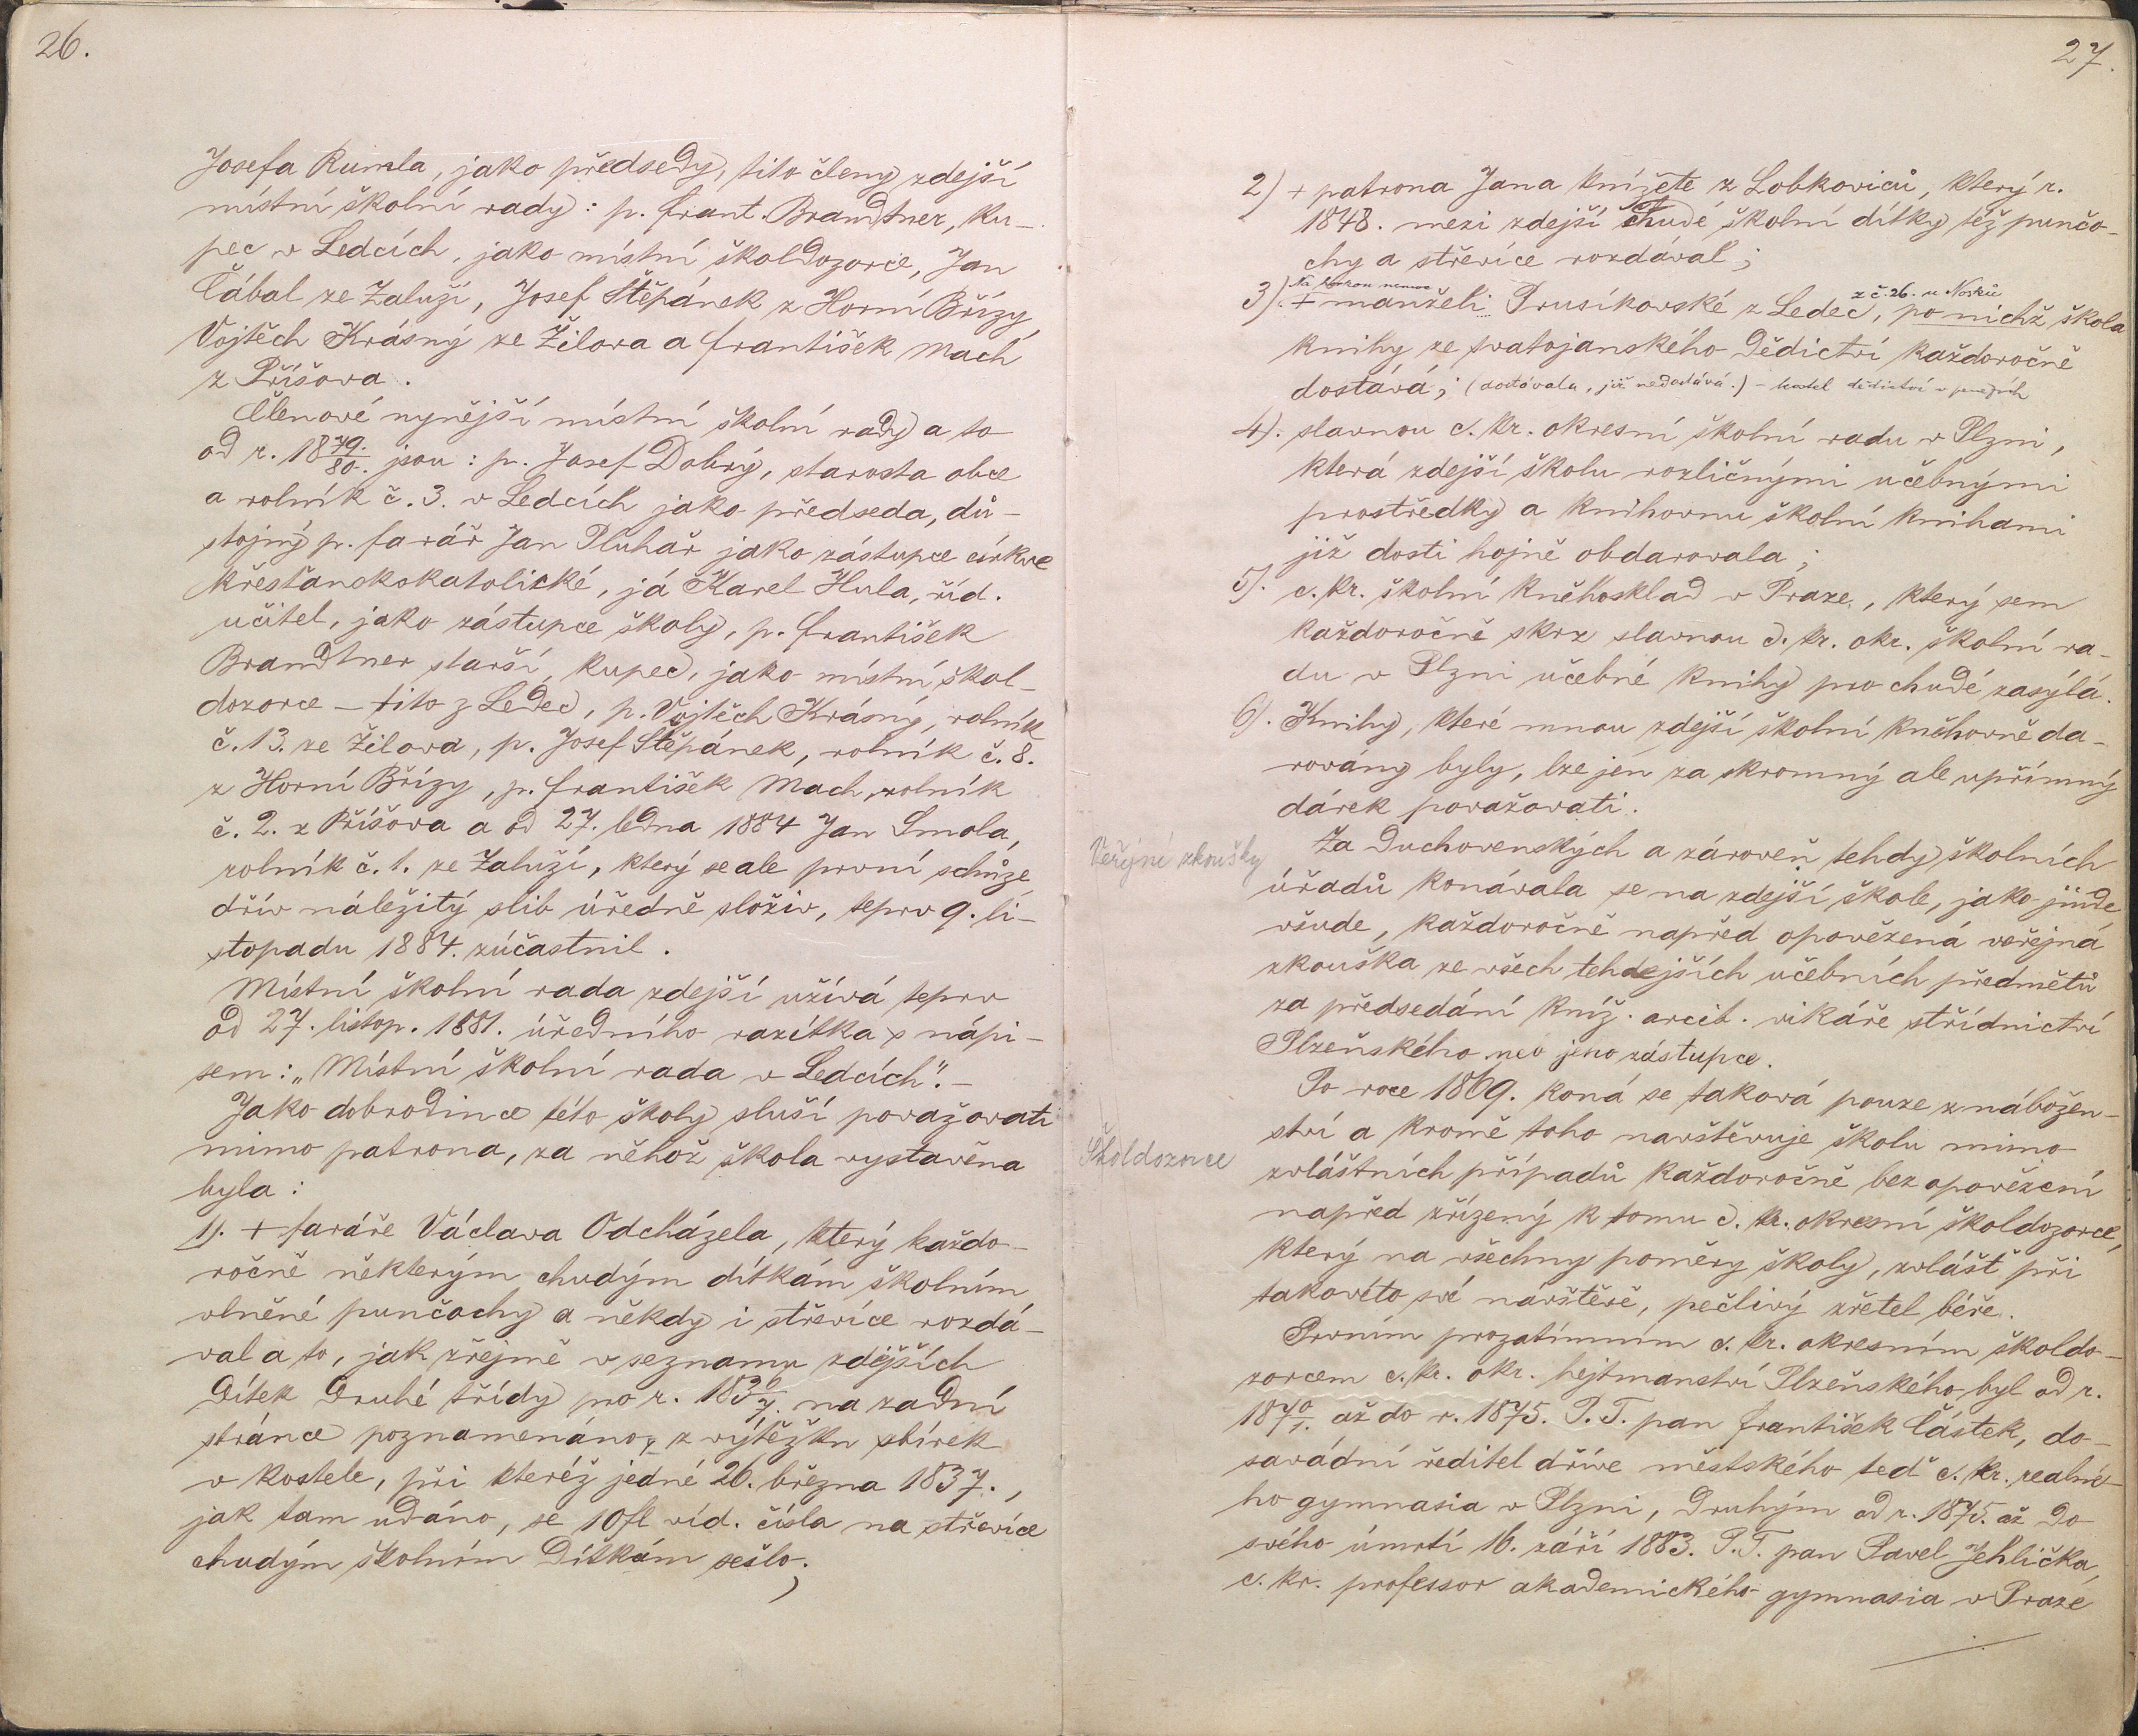 26.
Josefa Rumla, jako předsedy, tito členy zdejší
místní školní rady: p. Frant. Brandtner, ku-
pec v Ledcích, jako místní školdozorce, Jan
Čábal ze Zaluží, Josef Štěpánek z Horní Břízy,
Vojtěch Krásný ze Žilova a František Mach
z Příšova.
Členové nynější místní školní rady a to
od r. 1879./80. jsou: p. Josef Dobrý, starosta obce
a rolník č. 3. v Ledcích jako předseda, dů-
stojný p. farář Jan Pluhař jako zástupce církve
křesťanskokatolické, já Karel Hula, říd.
učitel, jako zástupce školy, p. František
Brandtner starší, kupec, jako místní škol-
dozorce – tito z Ledec, p. Vojtěch Krásný, rolník
č. 13. ze Žilova, p. Josef Štěpánek, rolník č. 8.
z Horní Břízy, p. František Mach, rolník
č. 2. z Příšova a od 27. ledna 1884 Jan Smola,
rolník č. 1. ze Zaluží, který se ale první schůze,
dřív náležitý slib úředně složiv, teprv 9. li-
stopadu 1884. zúčastnil.
Místní školní rada zdejší užívá teprv
od 27. listop. 1881. úředního razítka s nápi-
sem: „Místní školní rada v Ledcích". –
Jako dobrodince této školy sluší považovati
mimo patrona, za něhož škola vystavěna
byla:
1). + faráře Václava Odcházela, který každo-
ročně některým chudým dítkám školním
vlněné punčochy a někdy i střevíce rozdá-
val a to, jak zřejmě v seznamu zdejších
dítek druhé třídy pro r. 1836/7. na zadní
stránce poznamenáno, z výtěžku sbírek
v kostele, při kteréž jedné 26. března 1837.,
jak tam udáno, se 10 fl víd. čísla na střevíce
chudým školním dítkám sešlo;
27.
2) + patrona Jana knížete z Lobkoviců, který r.
1848. mezi zdejší chudé školní dítky též punčo-
chy a střevíce rozdával;
z č. 26. u Nosků
3). + manželi Prusíkovské z Ledec, po nichž škola
knihy ze svatojanského Dědictví každoročně
dostává; (dostávala, již nedostává.) –
4). slavnou c. kr. okresní školní radu v Plzni,
která zdejší školu rozličnými učebnými
prostředky a knihovnu školní knihami
již dosti hojně obdarovala;
5). c. kr. školní kněhosklad v Praze, který sem
každoročně skrz slavnou c. kr. okr. školní ra-
du v Plzni učebné knihy pro chudé zasýlá.
6). Knihy, které mnou zdejší školní kněhovně da-
rovany byly, lze jen za skromný ale upřímný
dárek považovati.
Veřejné zkoušky
Za duchovenských a zároveň tehdy školních
úřadů konávala se na zdejší škole, jako jinde
všude, každoročně napřed opověžená veřejná
zkouška ze všech tehdejších učebních předmětů
za předsedání kníž. arcib. vikáře střídnictví
Plzeňského neb jeho zástupce.
Po roce 1869. koná se taková pouze z nábožen-
ství a kromě toho navštěvuje školu mimo
Školdozorce
zvláštních případů každoročně bez opověžení
napřed zřízený k tomu c. kr. okresní školdozorce,
který na všechny poměry školy, zvlášť při
takovéto své návštěvě, pečlivý zřetel béře.
Prvním prozatímním c. kr. okresním školdo-
zorcem c. kr. okr. hejtmanství Plzeňského byl od r.
1870/1. až do r. 1875. P. T. pan František Částek, do-
savádní ředitel dříve městského teď c. kr. realné-
ho gymnasia v Plzni, druhým od r. 1875. až do
svého úmrtí 16. září 1883. P. T. pan Pavel Jehlička,
c. kr. professor akademického gymnasia v Praze